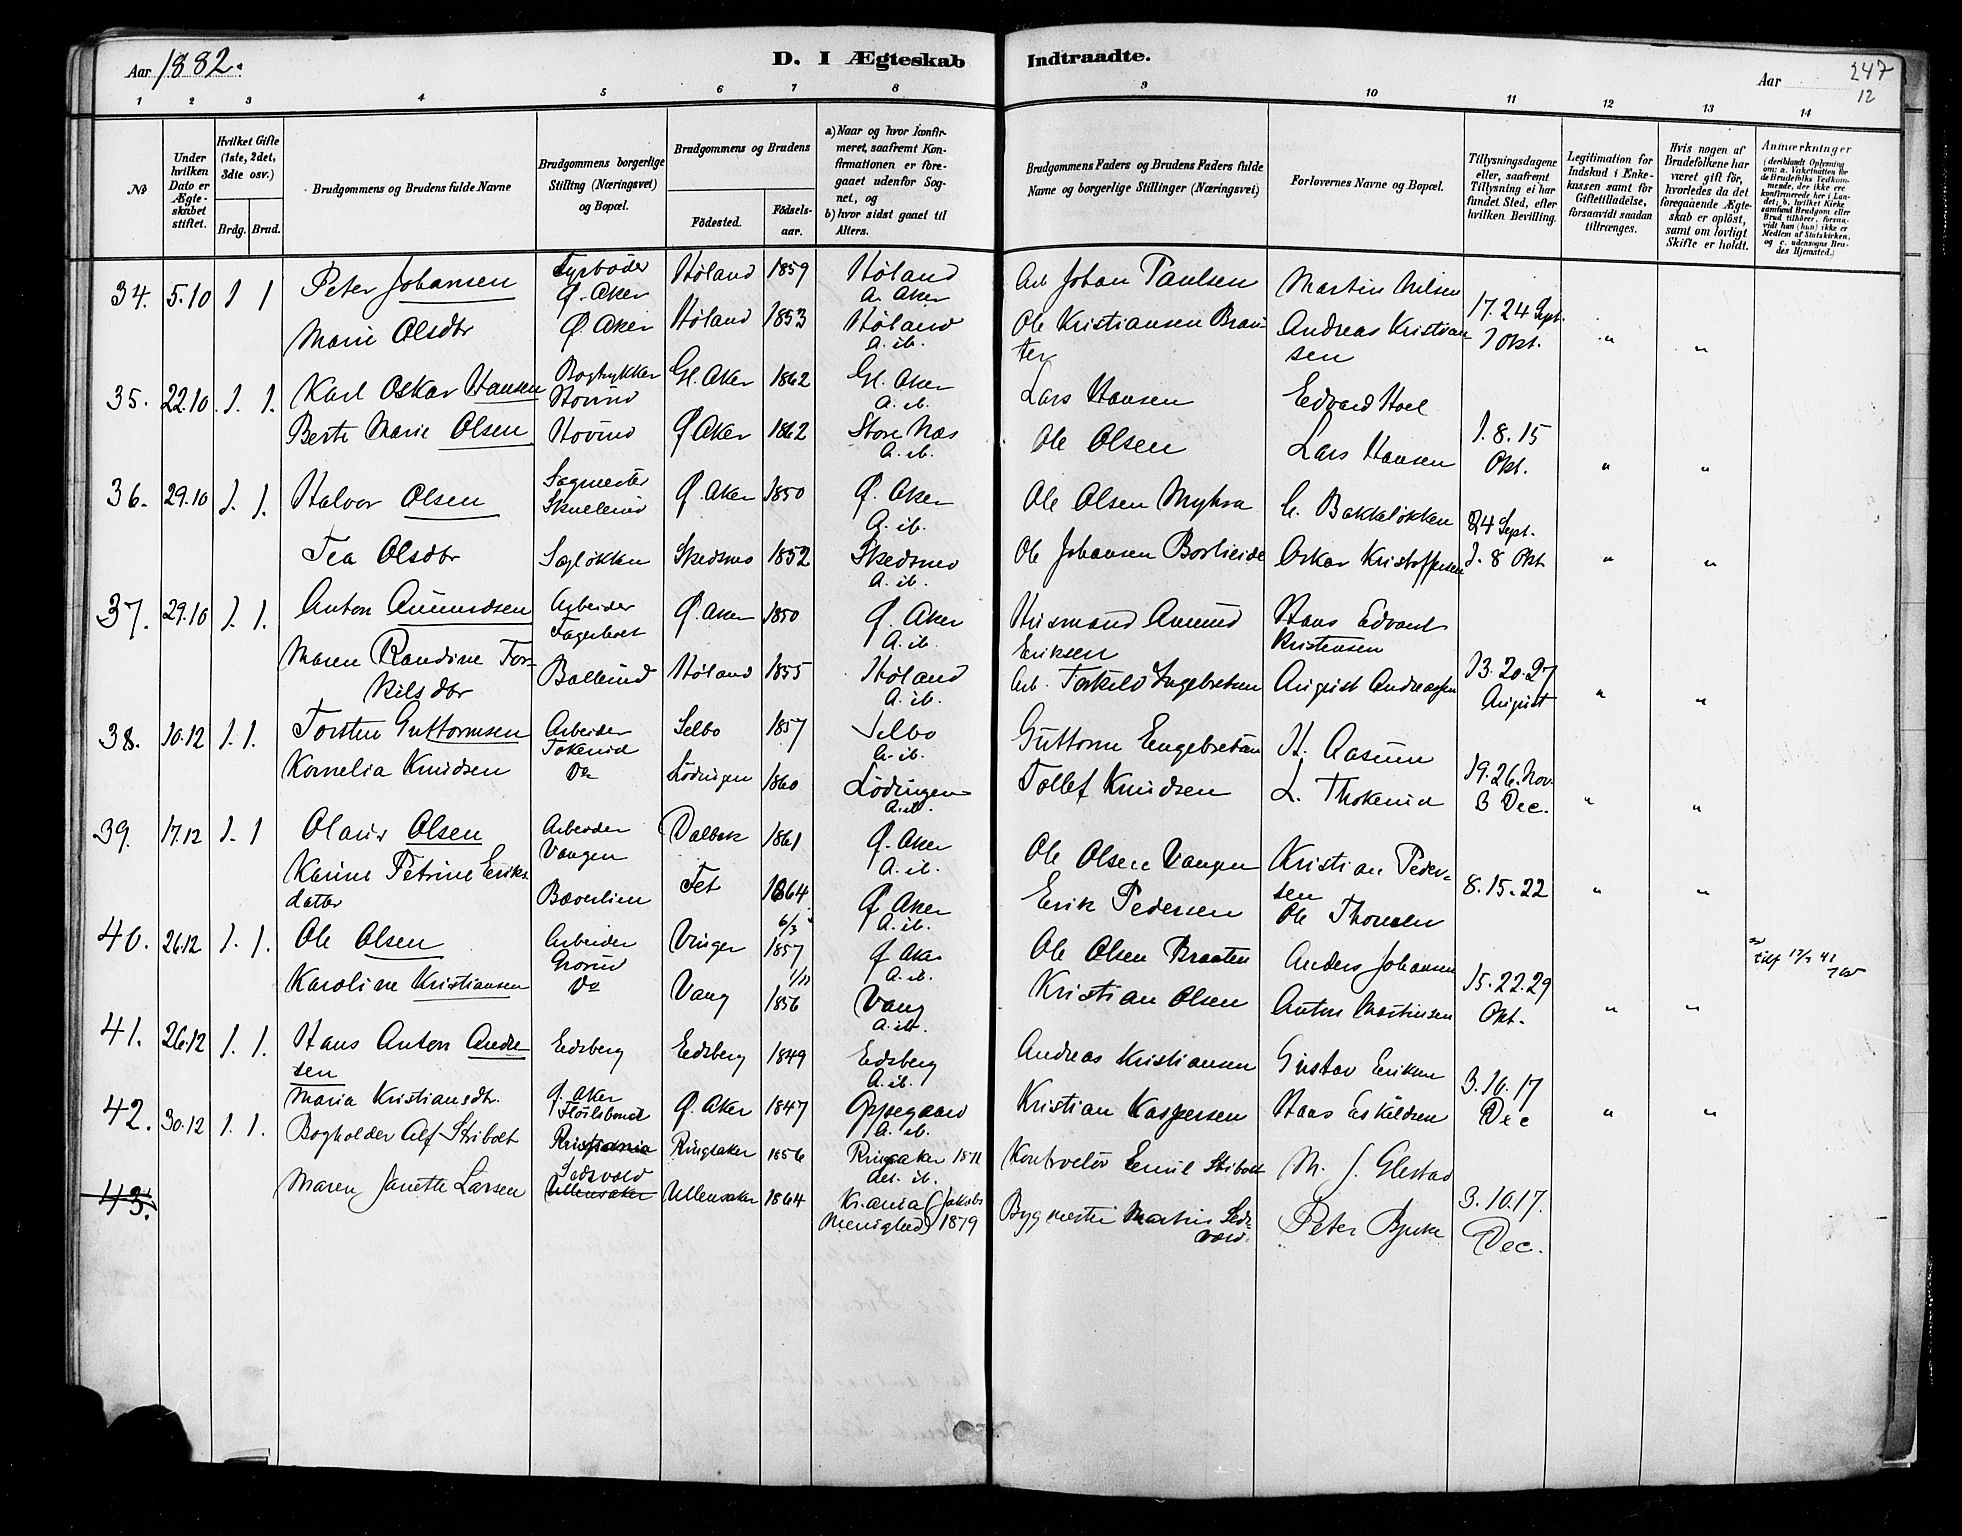 Aar 1882.
D. I Ægteskab Indtraadte.
Aar
247
12
1 2 3 4 5 6 7 8 9 10 11 12 13 14
No
Under hvilken Dato er Ægteskabet stiftet.
Hvilket Gifte (1ste, 2det, 3die osv.)
Brdg. Brud.
Brudgommens og Brudens fulde Navne
Brudgommens borgerlige Stilling (Næringsvei) og Bopæl.
Brudgommens og Brudens
Födested. Födsels-aar.
a) Naar og hvor Konfirmeret, saafremt Konfirmationen er foregaaet udenfor Sognet, og
b) hvor sidst gaaet til Alters.
Brudgommens Faders og Brudens Faders fulde Navne og borgerlige Stillinger (Næringsvei)
Forlovernes Navne og Bopæl.
Tillysningsdagene eller, saafremt Tillysning ei har fundet Sled, efter hvilken Bevilling.
Legitimation for Indskud i Enkekassen samt for Giftetilladelse, forsaavidt saadan tiltrænges.
Hvis nogen af Brudefolkene har været gift för, hvorledes da det foregaaende Ægteskab er oplöst, samt om lovligt Skifte er holdt.
Anmærkninger
(deriblandt Oplysning om: a. Vakcination for de Brudefolks Vedkommende, der ikke ere konfirmerede her i Landet; b. hvilket Kirkesamfund Brudgom eller Brud tilhörer, forsaavidt han (hun) ikke er Medlem af Statskirken, og c. udensogns Brudes Hjemsted.)
34. 5.10 1 1 Peter Johansen Fyrbøder Ø. Aker Høland 1859 Høland A. Aker Arb Johan Paulsen Martin Nilsen 17. 24 Sept.
Marie Olsdtr Ø Aker Høland 1853 Høland A. ib. Ole Kristiansen Andreas Kristiansen 1 Okt. " "
35. 22.10 1. 1. Karl Oskar Hansen Bogtrykker Hovind Gl. Aker 1862 Gl. Aker A. ib. Lars Hansen Edvard Hoel
Berte Marie Olsen Hovind Ø Aker 1862 Store Næs A. ib. Ole Olsen Lars Hansen 1. 8. 15 Okt. " "
36. 29.10 1. 1. Halvor Olsen Sagmester Skullerud Ø. Aker 1850 Ø. Aker A. ib. Ole Olsen Myhra C. Bakkeløkken 24 Sept.
Tea Olsdtr Sagløkken Skedsmo 1852 Skedsmo A. ib. Ole Johansen Oskar Kristoffersen 1. 8 Okt " "
37. 29.10 1. 1. Anton Amundsen Arbeider Ø. Aker 1850 Ø. Aker A. ib. Husmand Amund Eriksen Hans Edvard Kristensen
Maren Randine Torkilsdtr Høland 1855 Høland A. ib. Arb. Torkild Ingebretsen August Andreassen 13. 20. 27 August " "
38. 10.12 1. 1. Torsten Guttormsen Arbeider Tokerud Selbo 1857 Selbo A. ib. Guttorm Engebretsen H. Aasum
Kornelia Knudsen Do Lødingen 1860 Lødingen A. ib. Tollef Knudsen L. Thokerud 19. 26. Nov. 3 Dec. " "
39. 17.12 1. 1 Olaus Olsen Arbeider Vangen 1861 Ø. Aker A. ib. Ole Olsen Vangen Kristian Pedersen
Karine Petrine Eriksdatter Bæverlien Fet 1864 Ø Aker A. ib. Erik Pedersen Ole Thomsen 8. 15. 22 " "
40. 26.12 1. 1. Ole Olsen Arbeider Grorud Vinger 6/3 1857 Ø Aker A. ib. Ole Olsen Braaten Anders Johansen
Karoline Kristiansen Do Vang 1/11 1856 Vang A. ib. Kristian Olsen Anton Martinsen 15. 22. 29 Okt. " "
41. 26.12 1. 1. Hans Anton Andresen Eidsberg Eidsberg 1849 Eidsberg A. ib. Andreas Kristiansen Gustav Eriksen
Maria Kristiansdtr. Ø. Aker Ø. Aker 1847 Oppegaard A. ib. Kristian Kaspersen Hans Eskildsen 3. 10. 17 Dec " "
42. 30.12 1. 1. Bogholder Alf Stibolt Kristiania Ringsaker 1856 Ringsaker 1871 ib. Kontrolör Emil Stibolt M. J. Glestad
43. Maren Janette Larsen Sedsvold Ullensaker Ullensaker 1864 Kr.ania (Jakobs Menighed) 1879 Bygmester Martin Peter Bjerke 3. 10. 17. Dec.